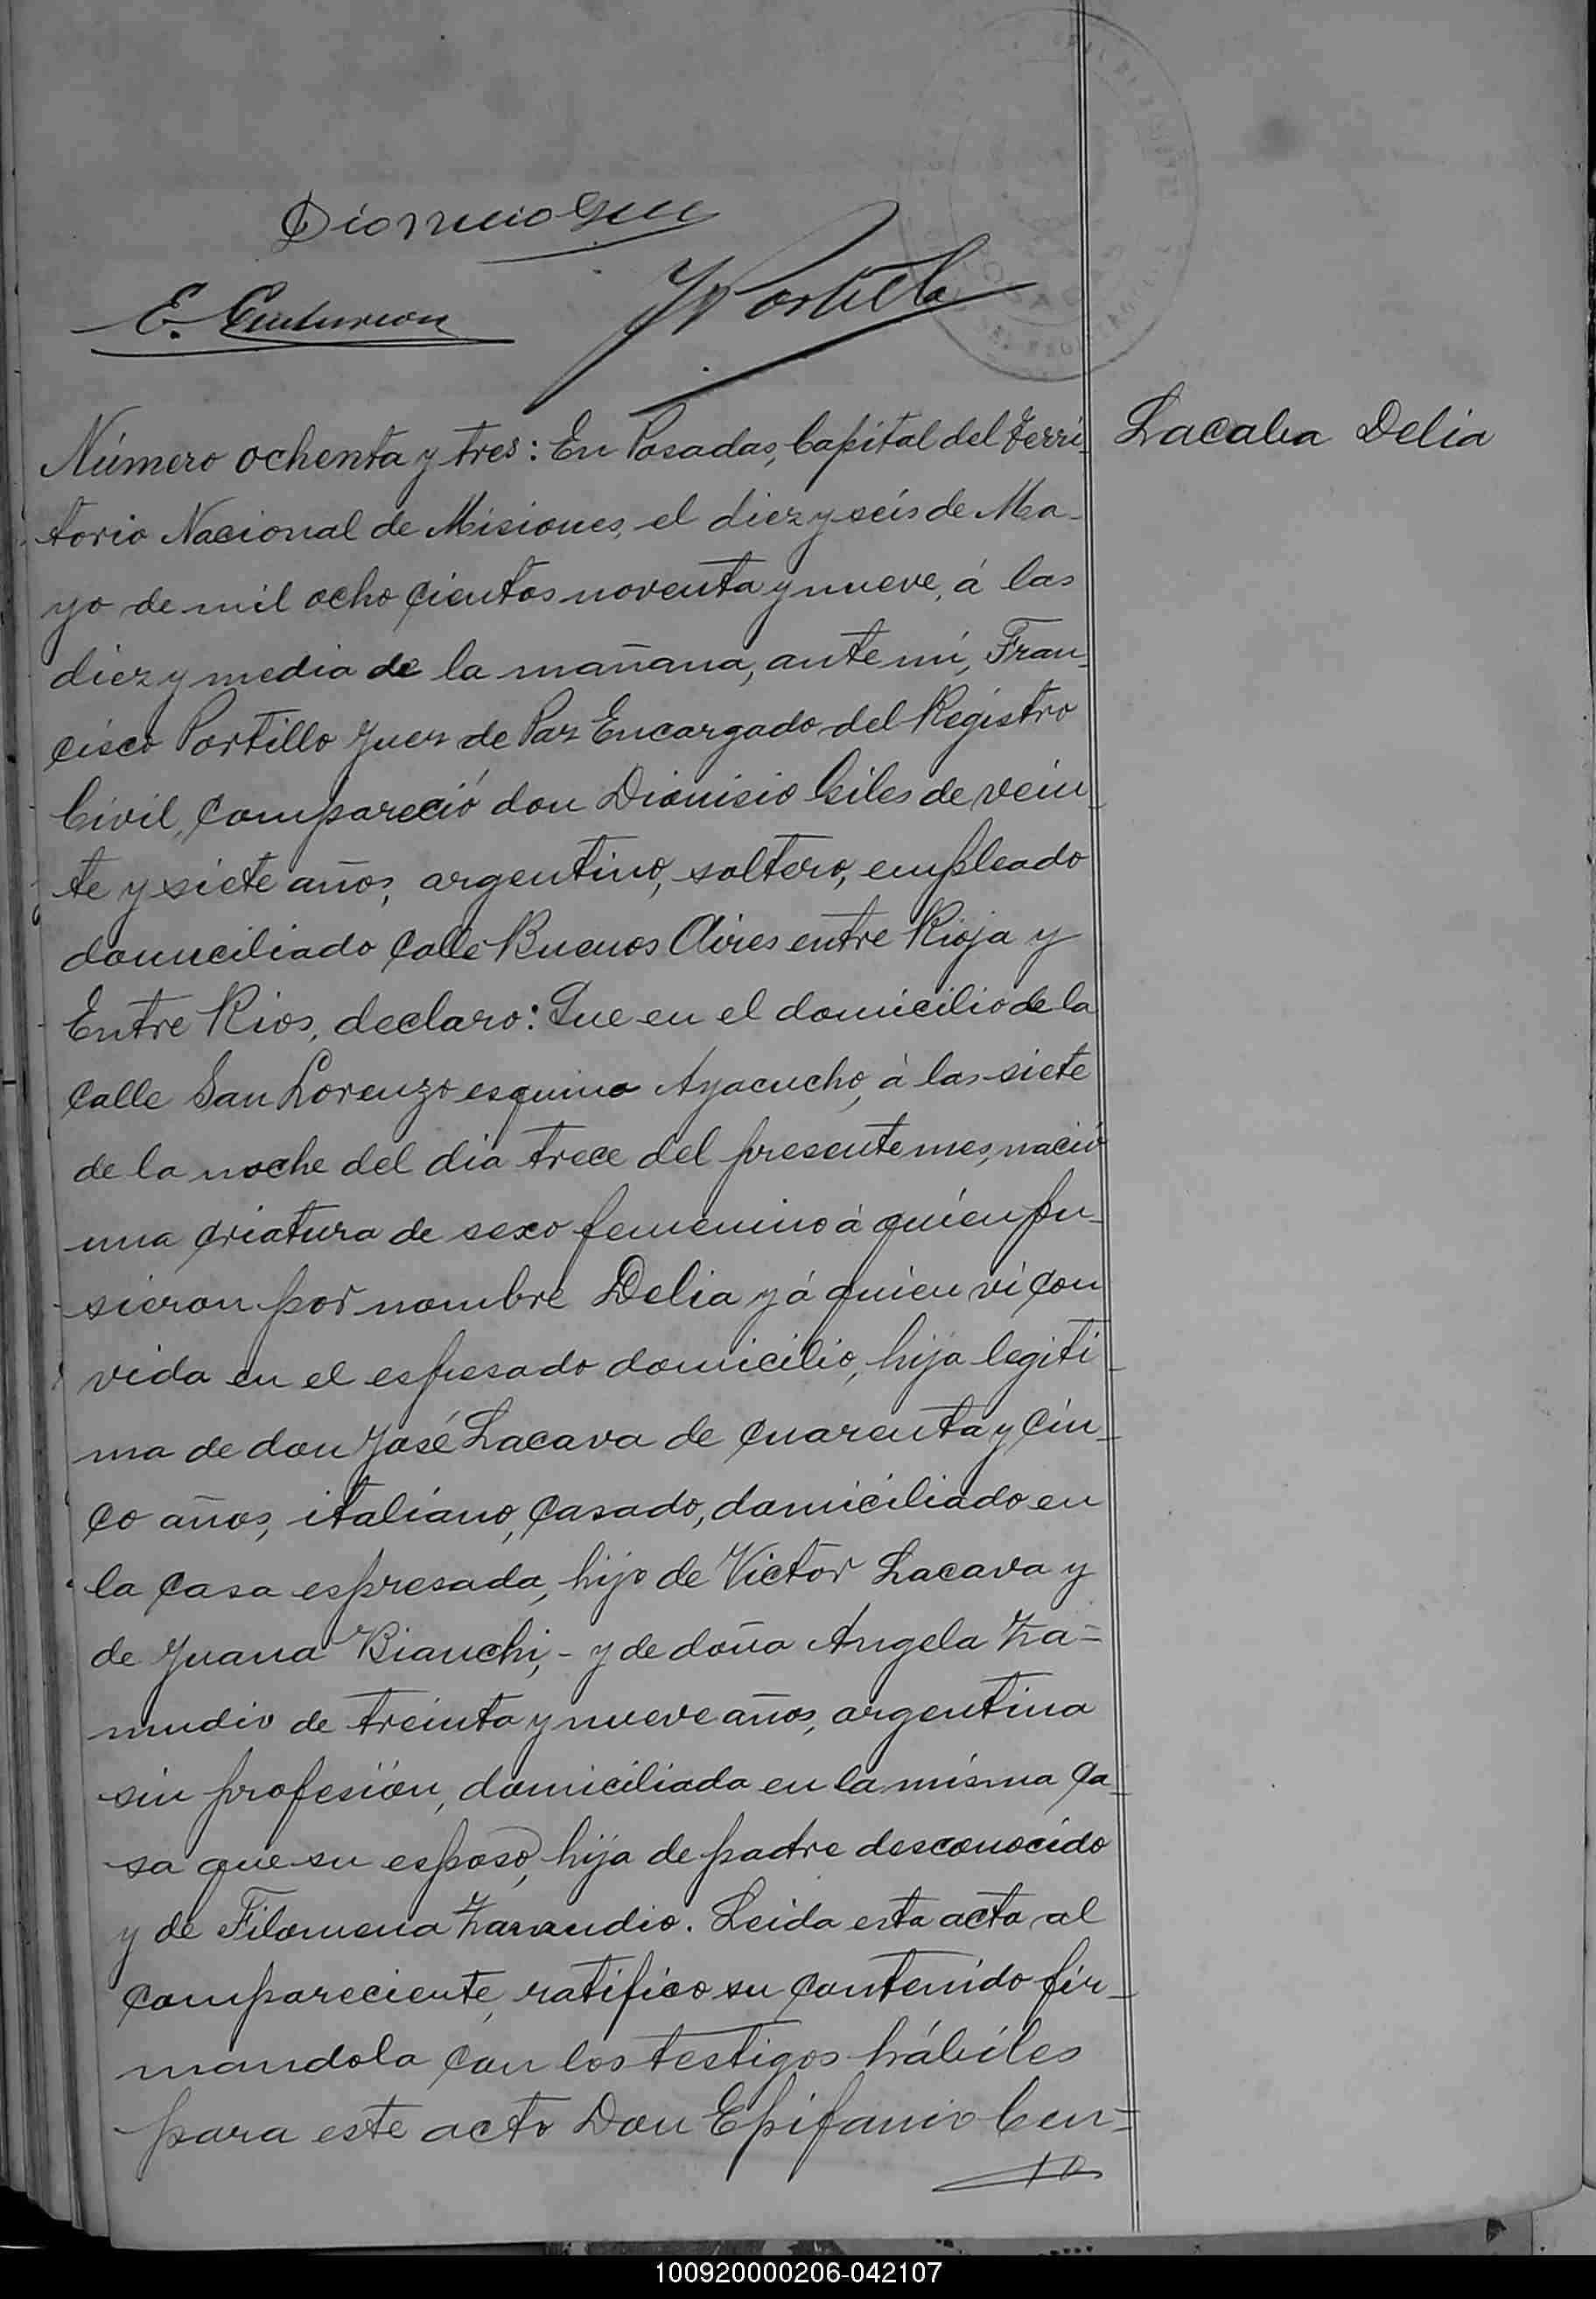 Dionicio
E. Centurion
F Portillo
Número ochenta y tres: En Posadas, Capital del Terri-
Lacaba Delia
torio Nacional de Misiones, el diez y seis de Ma-
yo de mil ocho cientos noventa y nueve, á las
diez y media de la mañana, ante mí, Fran-
cisco Portillo Juez de Paz Encargado del Registro
Civil, compareció don Dionisio Giles de vein-
te y siete años, argentino, soltero, empleado
domiciliado calle Buenos Aires entre Rioja y
Entre Rios, declaro: Que en el domicilio de la
calle San Lorenzo esquina Ayacucho, á las siete
de la noche del dia trece del presente mes, nació
una criatura de sexo femenino á quién pu-
sieron por nombre Delia y á quién ví con
vida en el espresado domicilio, hija legiti-
ma de don José Lacava de cuarenta y cin-
co años, italiano, casado, domiciliado en
la casa espresada, hijo de Victor Lacava y
de Juana Bianchi, - y de doña Angela Za=
mudio de treinta y nueve años, argentina
sin profesión, domiciliada en la misma ca-
sa que su esposo, hija de padre desconocido
y de Filomena Zamudio. Leida esta acta al
compareciente, ratifico su contenido fir-
mandola con los testigos hábiles
para este acto Don Epifanio Cen=
100920000206-042107